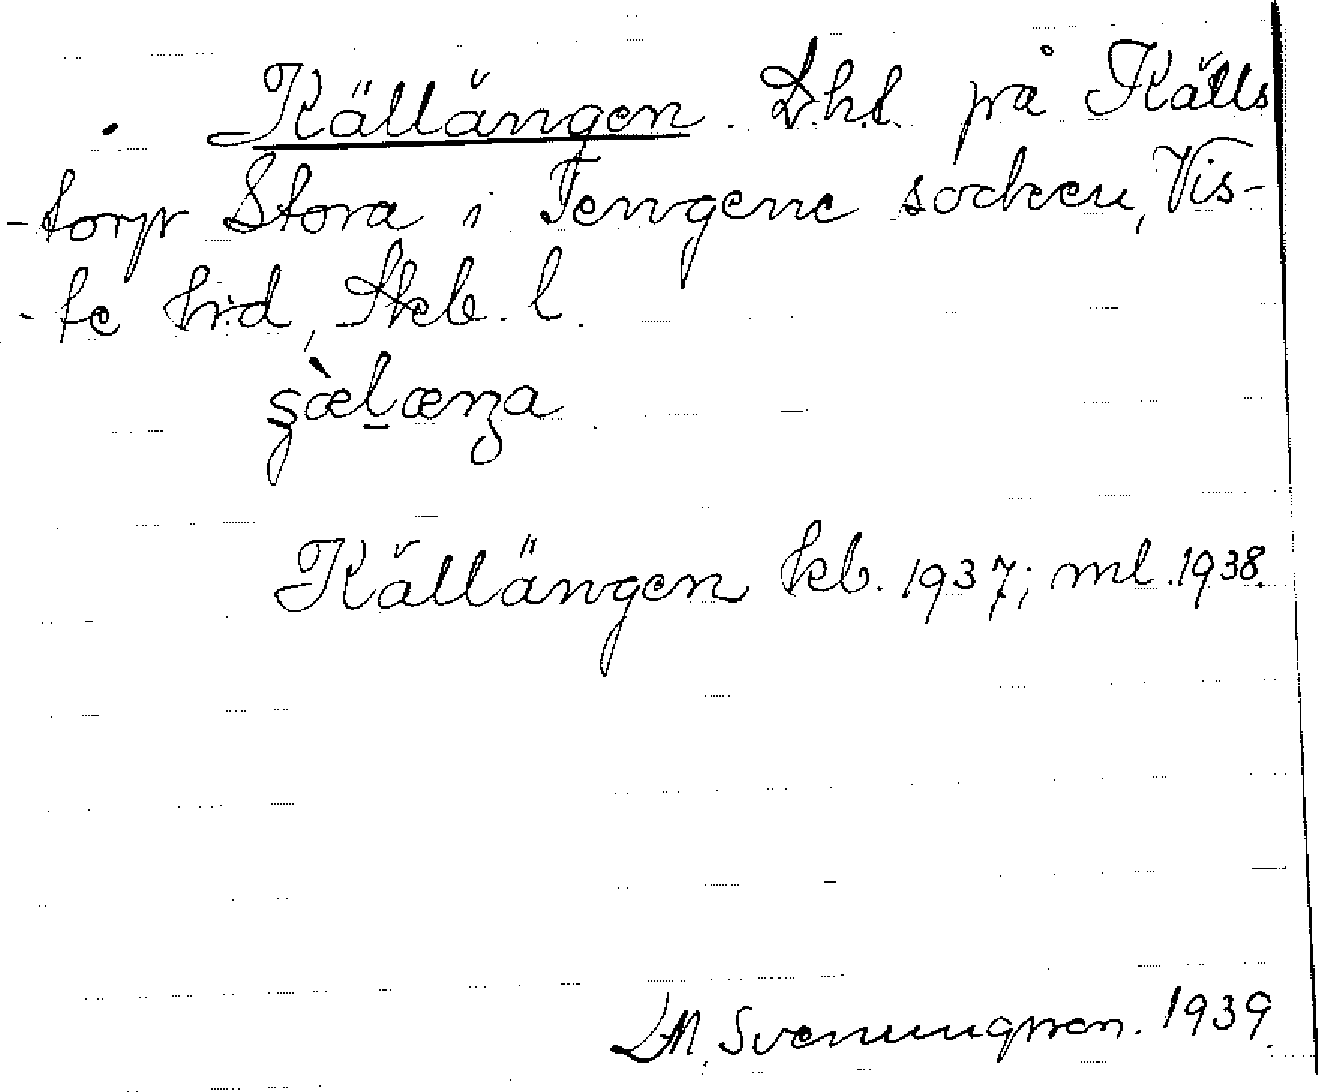 Källängen. Lht. på Källs
-torp Stora i Tengene socken, Vis-
-te hrd, Skb. l.
Källängen kb. 1937; ml. 1938.
D.M. Svenungsson. 1939.